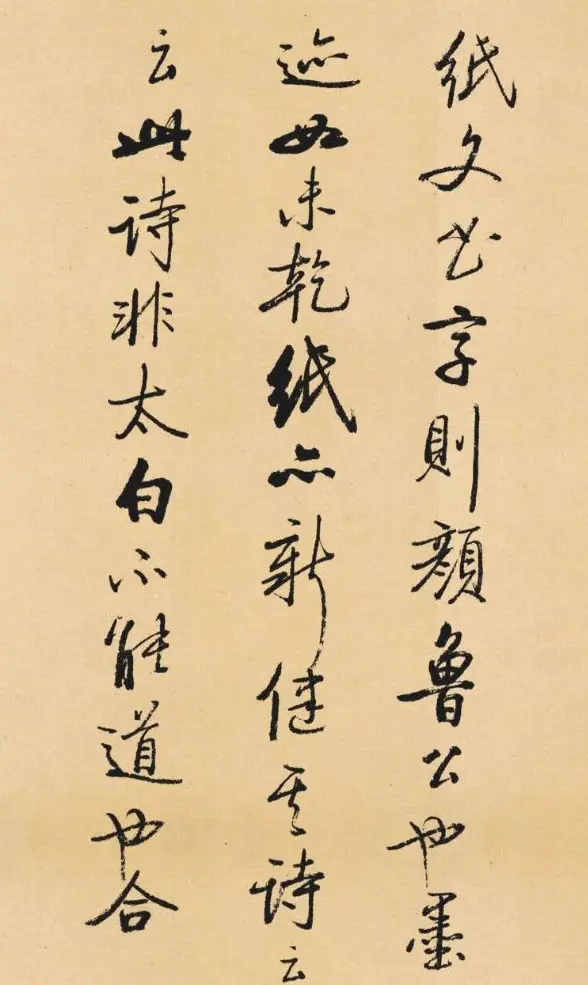 纸文书字则颜鲁公也墨
迹如未乾纸亦新健其诗云
云此诗非太白不能道也合